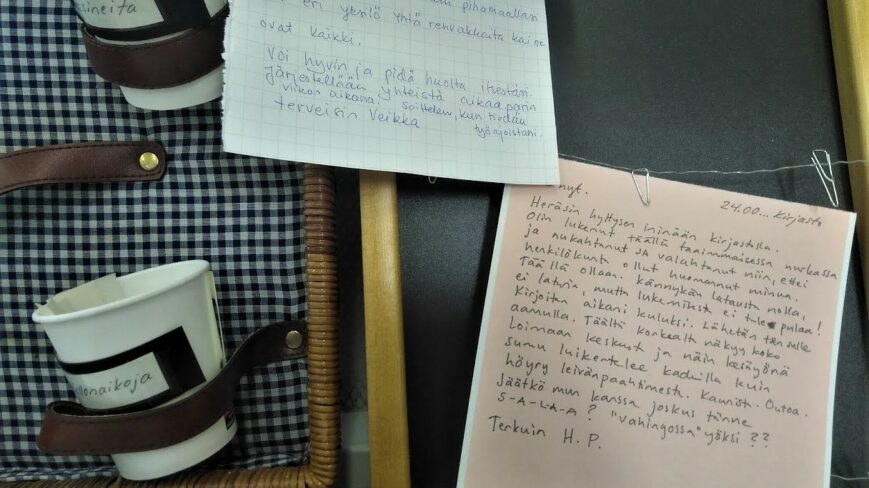 pihamaallasi
eri
yhtä rehvakkaita kai ne
ovat kaikki.
Voi hyvin ja pidä huolta itsestäsi.
Järjestellään yhteistä aikaa parin
viikon aikana. Soittelen, kun tiedän
työvuoroistani.
terveisin Veikka
24.00... kirjasto
nyt.
Heräsin hyttysen ininään kirjastolla.
Olin lukenut täällä taaimmaisessa nurkassa
ja nukahtanut ja valahtanut niin, ettei
henkilökunta ollut huomannut minua.
Täällä ollaan. Kännykän lataus nolla,
ei laturia, mutta lukemisesta ei tule pulaa!
Kirjoitan aikani kuluksi. Lähetän tän sulle
aamulla. Täältä korkealt näkyy koko
Loimaan keskust ja näin kesäyönä
sumu luikertelee kaduilla kuin
höyry leivänpaahtimest. Kaunist. Outoa.
Jäätkö mun kanssa joskus tänne
S-A-L-A-A? "vahingossa" yöksi??
Terkuin H.P.